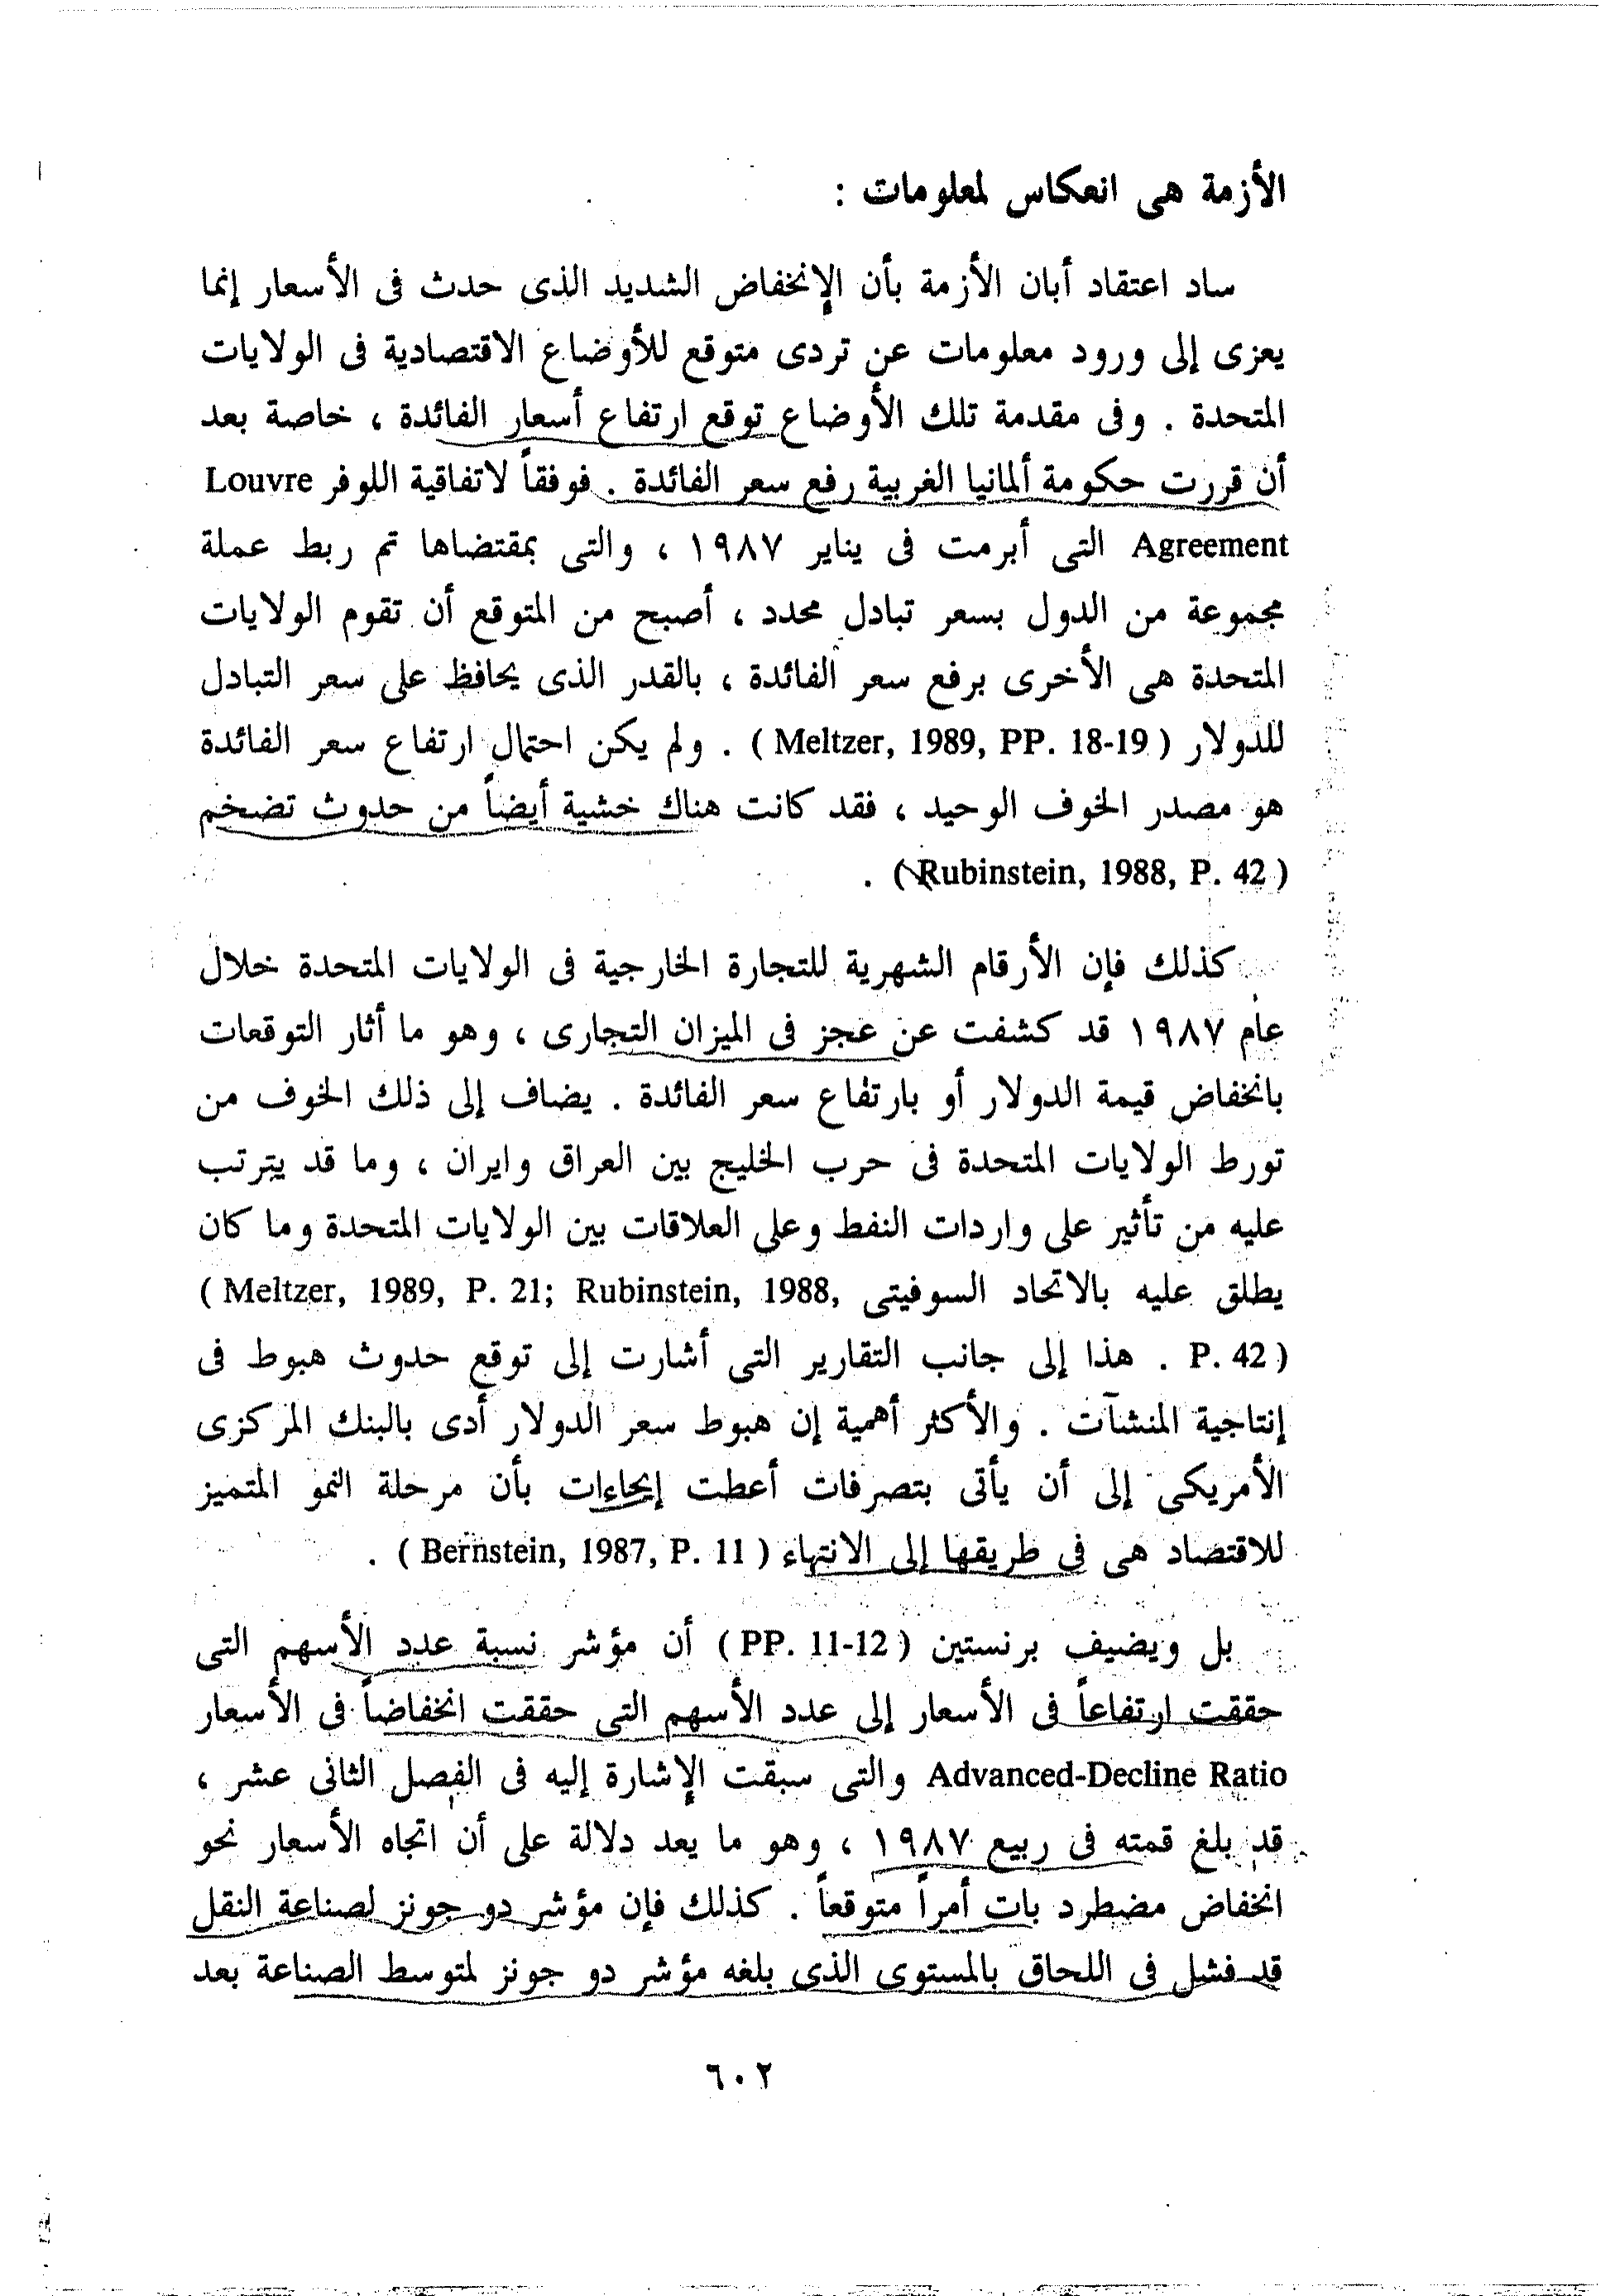 الأزمة هى انعكاس لمعلومات :
ساد اعتقاد أبان الأزمة بأن الإنخفاض الشديد الذى حدث فى الأسعار إنما
يعزى إلى ورود معلومات عن تردى متوقع للأوضاع الاقتصادية فى الولايات
المتحدة . وفى مقدمة تلك الأوضاع توقع ارتفاع أسعار الفائدة ، خاصة بعد
أن قررت حكومة ألمانيا الغربية رفع سعر الفائدة . فوفقاً لاتفاقية اللوفر Louvre
Agreement التى أبرمت فى يناير ١٩٨٧ ، والتى بمقتضاها تم ربط عملة
مجموعة من الدول بسعر تبادل محدد ، أصبح من المتوقع أن تقوم الولايات
المتحدة هى الأخرى برفع سعر الفائدة ، بالقدر الذى يحافظ على سعر التبادل
للدولار ( Meltzer, 1989, PP. 18-19 ) . ولم يكن احتمال ارتفاع سعر الفائدة
هو مصدر الخوف الوحيد ، فقد كانت هناك خشية أيضاً من حدوث تضخم
( Rubinstein, 1988, P. 42 ) .
كذلك فإن الأرقام الشهرية للتجارة الخارجية فى الولايات المتحدة خلال
عام ١٩٨٧ قد كشفت عن عجز فى الميزان التجارى ، وهو ما أثار التوقعات
بانخفاض قيمة الدولار أو بارتفاع سعر الفائدة . يضاف إلى ذلك الخوف من
تورط الولايات المتحدة فى حرب الخليج بين العراق وايران ، وما قد يترتب
عليه من تأثير على واردات النفط وعلى العلاقات بين الولايات المتحدة وما كان
يطلق عليه بالاتحاد السوفيتى ( Meltzer, 1989, P. 21; Rubinstein, 1988,
P. 42 ) . هذا إلى جانب التقارير التى أشارت إلى توقع حدوث هبوط فى
إنتاجية المنشآت . والأكثر أهمية إن هبوط سعر الدولار أدى بالبنك المركزى
الأمريكى إلى أن يأتى بتصرفات أعطت إيحاءات بأن مرحلة النمو المتميز
للاقتصاد هى فى طريقها إلى الانتهاء ( Bernstein, 1987, P. 11 ) .
بل ويضيف برنستين ( PP. 11-12 ) أن مؤشر نسبة عدد الأسهم التى
حققت ارتفاعاً فى الأسعار إلى عدد الأسهم التى حققت انخفاضاً فى الأسعار
Advanced-Decline Ratio والتى سبقت الإشارة إليه فى الفصل الثانى عشر ،
قد بلغ قمته فى ربيع ١٩٨٧ ، وهو ما يعد دلالة على أن اتجاه الأسعار نحو
انخفاض مضطرد بات أمراً متوقعاً . كذلك فإن مؤشر دو جونز لصناعة النقل
قد فشل فى اللحاق بالمستوى الذى بلغه مؤشر دو جونز لمتوسط الصناعة بعد
٦٠٢